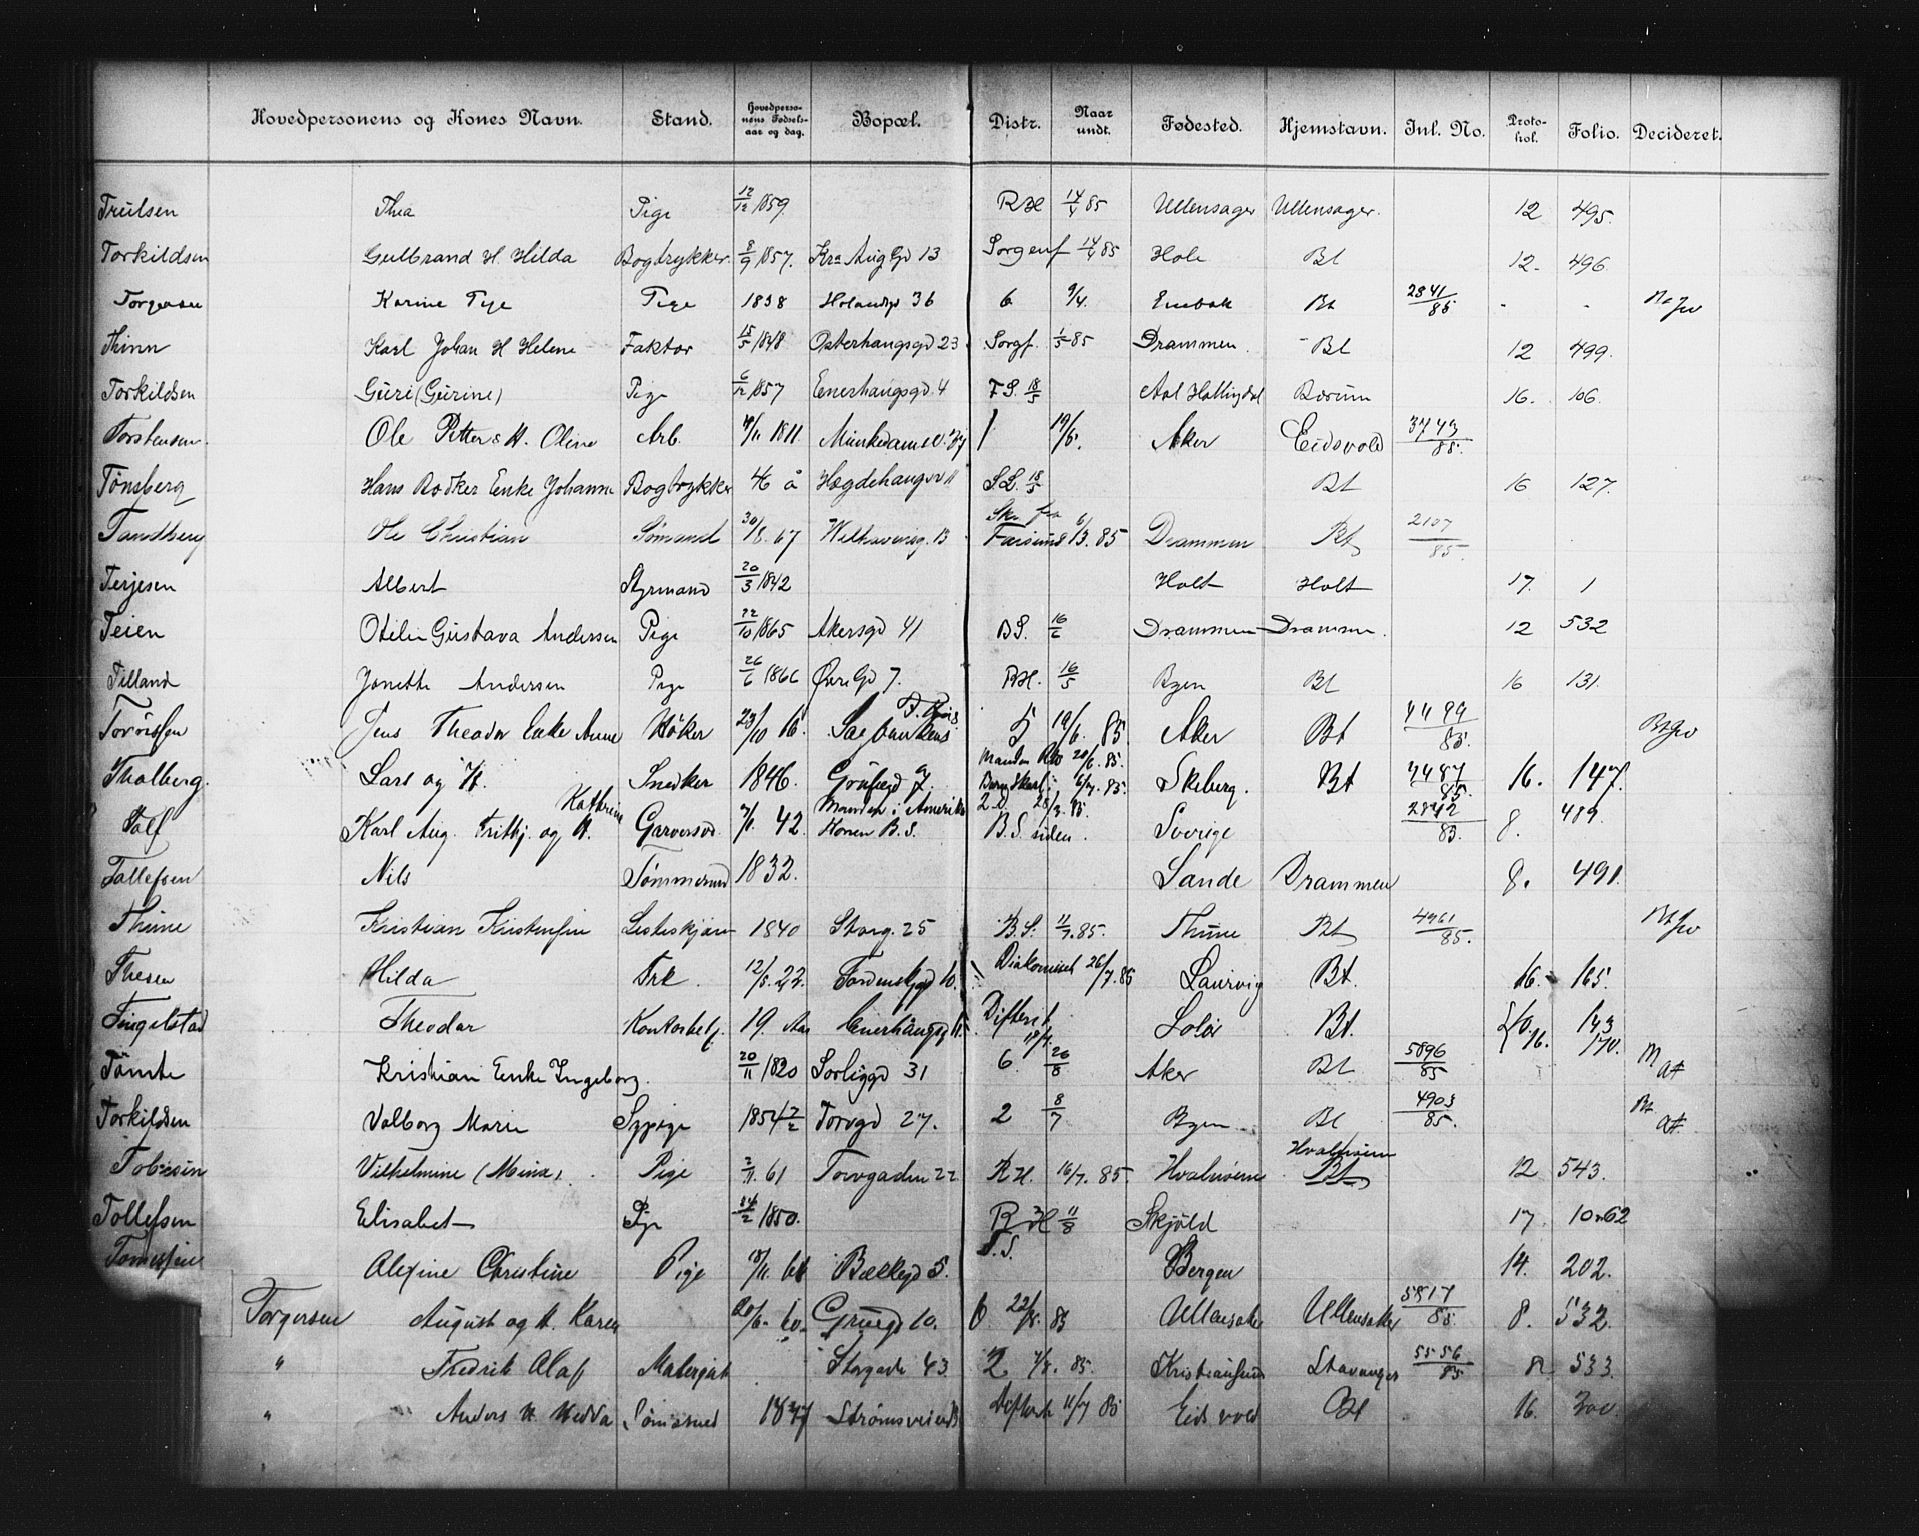 Hovedpersonens og Kones Navn. Stand. Hovedpersonens Fødselsaar og dag. Bopæl. Distr. Naar undt. Fødested. Hjemstavn. Jnl. No. Protokol. Folio. Decideret.
Trulsen Thea Pige 12/12 1859. RH 14/4 85 Ullensager Ullensager. 12 495.
Torkildsen Gulbrand H. Hilda Bogtrykker 8/9 1857. Kra Aug Gd 13 Sorgenf 14/4 85 Hole Bt 12. 496
Torgersen Karine Pige 1838 36 6 9/4. Enebak Bt 2841/85
Thinn Karl Johan H Helene Faktor 15/5 1848 Østerhausgd 23 Sorgf. 1/5 85 Drammen. Bt 12 499.
Torkildsen Guri (Gurine) Pige 6/12 1857 Enerhaugsgd 4 F.S. 18/5 Aal Hallingdal Bærum 16. 106.
Torstensen. Ole Petter & H. Oline Arb. 1811. Munkedamsv. 1 19/5. Aker Eidsvold 3743/85.
Tønsberg Hans Bødker Enke Johanne Bogtrykker 46 å Hægdehaugsv 11 S.L. 18/5 Bt 16 127.
Tandberg Ole Christian Sømand 30/8. 67 Welhavensg. 13 Skr fra Farsund 6/3. 85 Drammen Bt 2107/85.
Terjesen Albert Styrmand 20/3 1842 Holt Holt 17. 1
Teien Otilie Gustava Andersen Pige 22/10 1865 Akersgd 41 B.S. 16/6 Drammen Drammen. 12 532
Tilland Jonette Andersen Pige 26/6 1866 Øvre Gd 7. RH. 16/5 Byen Bt 16 131.
Jens Theodor Enke Anne Høker 23/10 16. 5 19/6. 85. Aker Bt 4499/85.
Thalberg. Lars og H. Snedker 1846. Grünegd 7. Manden RH 20/6. 85. 6/7. 85. Skeberg. Bt 7487/85. 16. 147.
Tolf Karl Aug. Fritj. og H. Kathrine Garversvd 7/1. 42. Manden i Amerika Konen B.S. 2.D. 28/3. 85. B.S. siden. Sverige 2842/83. 8. 489.
Tollefsen Nils Tømmermd 1832. Sande Drammen 8. 491.
Thune Kristian Kristensen 1840 Storg. 25 B.S. 11/7. 85. Thune Bt 4961/85.
Thesen Hilda Frk. 12/5. 22. Tordenskjgd 10. Diakoniset 26/7. 85 Laurvig Bt. 16. 165.
Tingelstad Theodor Kontorbetj. 19. Aar Enerhaugsg 11. Difterit 18/7. Solør Bt. 10. 16. 143 170.
Tømte Kristian Enke Ingeborg. 20/11 1820 Sorligd 31 6. 26/8 Aker Bt 5896/85 M
Torkildsen Valborg Marie Sypige 1854 7/2 Torvgd 27. 2 8/7 Byen Bt 4903/85. Bt
Tobiesen Vilhelmine (Mina). Pige 2/11. 61 Torvgaden 22 RH. 16/7. 85. Hvalsøerne Hvalsøerne Bt 12 543.
Tollefsen Elisabet Pige 1850. RH 11/8 Skjöld 17. 10262
Alexine Christine Pige 18/11. 61 Bækkegd 5. T.S. Bergen 14. 202.
Torgersen August og H. Karen 20/6. 60. Gruegd 10. 6 22/8. 85 Ullensaker Ullensaker 5817/85. 8. 532.
" Fredrik Olaf Storgade 43 2 7/8. 85. Kristiansund Stavanger 5556/85 8. 533.
" Anders H. Hedda Sømand 1847 Strømsveien Difterit 11/7 85 Eidsvold Bt 16. 300.